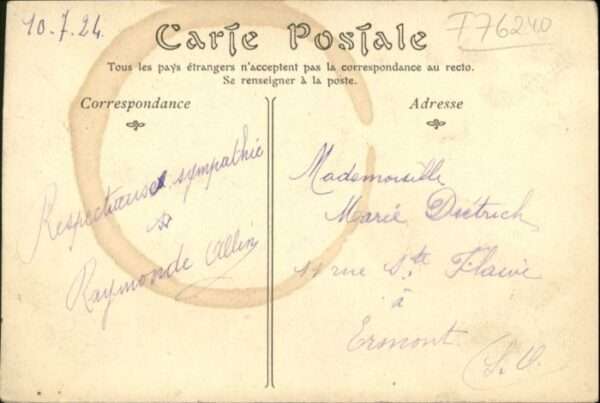 10.7.24
T76240
Carte Postale
Tous les pays étrangers n'acceptent pas la correspondance au recto.
Se renseigner à la poste.
Correspondance
Respectueuse sympathie
Raymonde Allin
Adresse
Mademoiselle
Marie Diétrich
rue Ste Flaive
à
Ermont
(S. O.